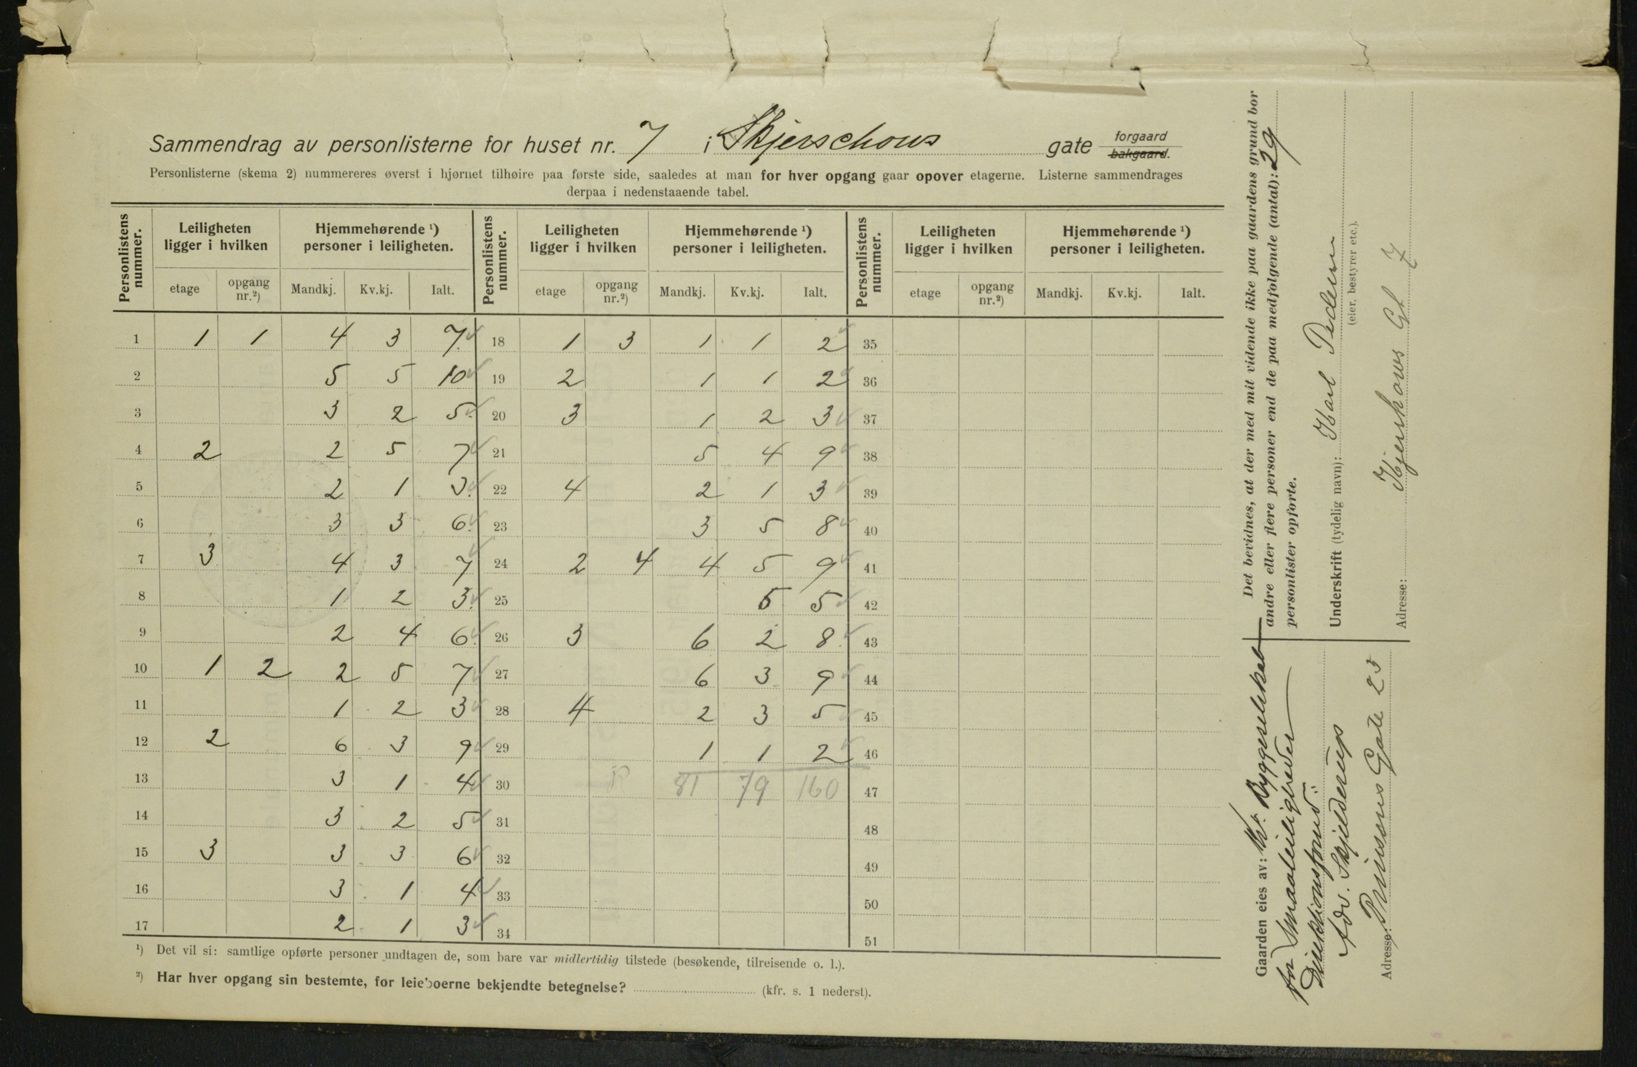 Sammendrag av personlisterne for huset nr. 7 i Skjerschows gate forgaard bakgaard.
Personlisterne (skema 2) nummereres øverst i hjørnet tilhøire paa første side, saaledes at man for hver opgang gaar opover etagerne. Listerne sammendrages
derpaa i nedenstaaende tabel.
Personlistens nummer. Leiligheten ligger i hvilken Hjemmehørende ¹) personer i leiligheten. Personlistens nummer. Leiligheten ligger i hvilken Hjemmehørende ¹) personer i leiligheten. Personlistens nummer. Leiligheten ligger i hvilken Hjemmehørende ¹) personer i leiligheten.
etage opgang nr.²) Mandkj. Kv.kj. Ialt. etage opgang nr.²) Mandkj. Kv.kj. Ialt. etage opgang nr.²) Mandkj. Kv.kj. Ialt.
1 1 1 4 3 7 18 1 3 1 1 2 35
2 5 5 10 19 2 1 1 2 36
3 3 2 5 20 3 1 2 3 37
4 2 2 5 7 21 5 4 9 38
5 2 1 3 22 4 2 1 3 39
6 3 3 6 23 3 5 8 40
7 3 4 3 7 24 2 4 4 5 9 41
8 1 2 3 25 5 5 42
9 2 4 6 26 3 6 2 8 43
10 1 2 2 5 7 27 6 3 9 44
11 1 2 3 28 4 2 3 5 45
12 2 6 3 9 29 1 1 2 46
13 3 1 4 30 81 79 160 47
14 3 2 5 31 48
15 3 3 3 6 32 49
16 3 1 4 33 50
17 2 1 3 34 51
¹) Det vil si: samtlige opførte personer undtagen de, som bare var midlertidig tilstede (besøkende, tilreisende o. l.).
²) Har hver opgang sin bestemte, for leieboerne bekjendte betegnelse? (kfr. s. 1 nederst).
Det bevidnes, at der med mit vidende ikke paa gaardens grund bor
andre eller flere personer end de paa medfølgende (antal): 29
personlister opførte.
Underskrift (tydelig navn): Karl Pedersen
(eier, bestyrer etc.).
Adresse: Skjerschows Gt 7
Gaarden eies av: Byggeselskab
for Smaaleiligheder
Adv. Skjelderup
Adresse: Prinsens Gate 25